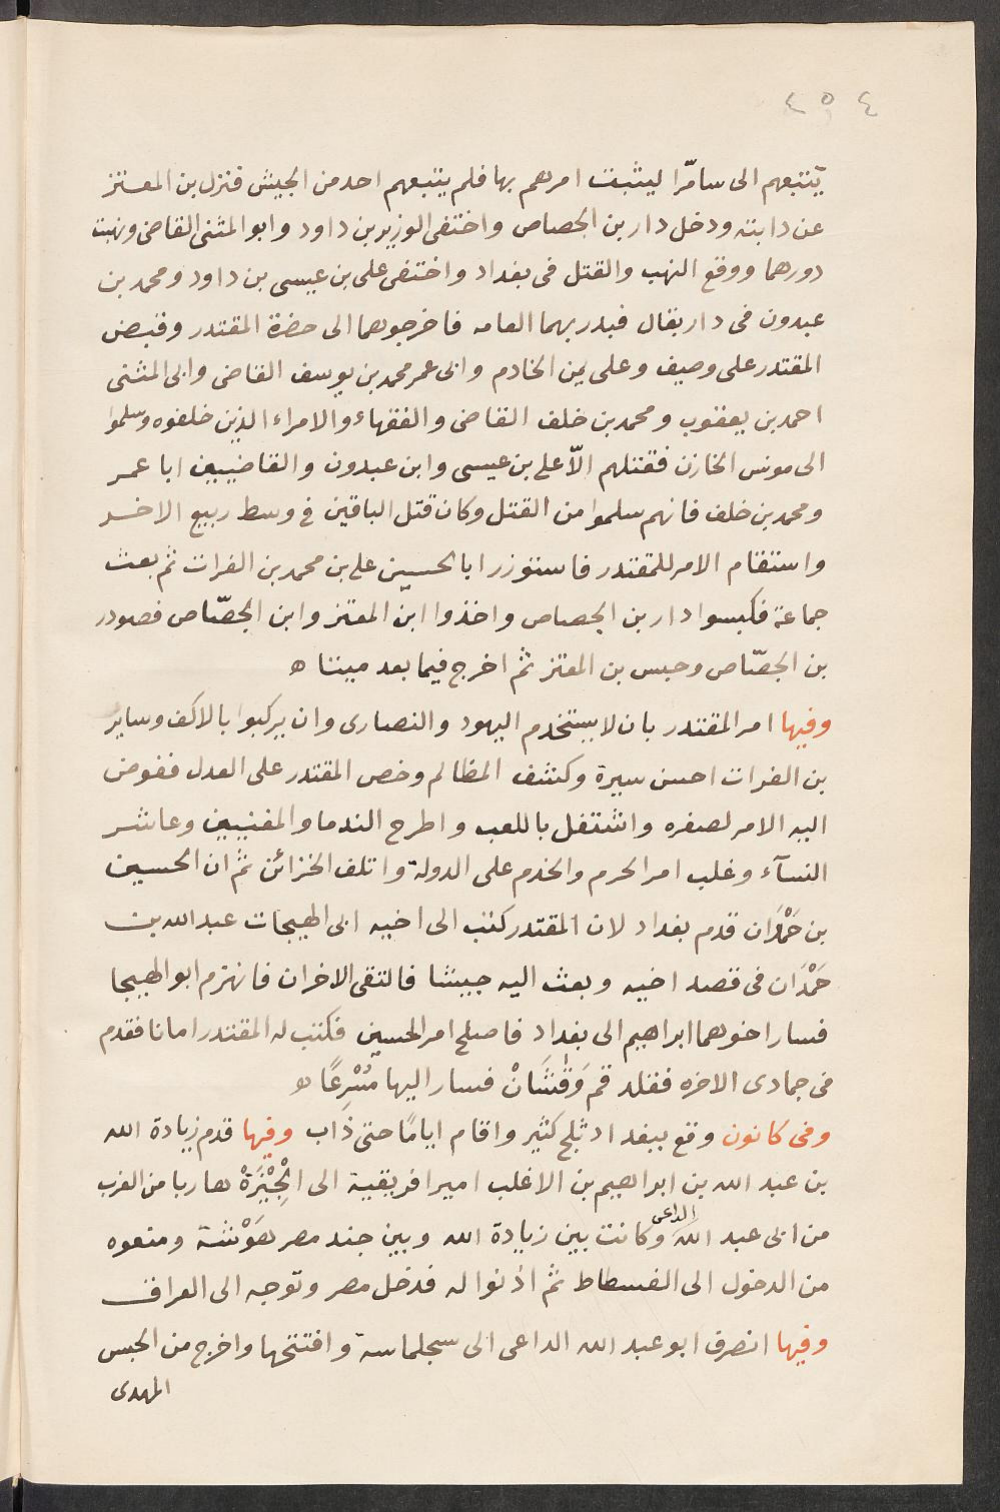 ٤٥٤
يتبعهم الى سامرّا ليثبت امرهم بها فلم يتبعهم احد من الجيش فنزل بن المعتز
عن دابته ودخل دار بن الجصاص واختفى الوزير بن داود وابو المثنى القاضى ونهبت
دورهما ووقع النهب والقتل فى بغداد واختفى على بن عيسى بن داود ومحمد بن
عبدون فى دار بقال فبدر بهما العامه فاخرجوهما الى حضرة المقتدر وقبض
المقتدر على وصيف وعلى يمن الخادم وابى عمر محمد بن يوسف القاضى وابى المثنى
احمد بن يعقوب ومحمد بن خلف القاضى والفقهاء والامراء الذين خلفوه وسلموا
الى مونس الخازن فقتلهم الاّ على بن عيسى وابن عبدون والقاضيين ابا عمر
ومحمد بن خلف فانهم سلموا من القتل وكان قتل الباقين فى وسط ربيع الاخر
واستقام الامر للمقتدر فاستوزر ابا الحسين على بن محمد بن الفرات ثم بعث
جماعة فكبسوا دار بن الجصاص واخذوا ابن المعتز وابن الجصّاص فصودر
بن الجصّاص وحبس بن المعتز ثم اخرج فيما بعد ميتا ه
وفيها امر المقتدر بان لا يستخدم اليهود والنصارى وان يركبوا بالاكف وساير
بن الفرات احسن سيرة وكشف المظالم وخص المقتدر على العدل ففوض
اليه الامر لصغره واشتغل باللعب واطرح الندما والمغنيين وعاشر
النسآء وغلب امر الحرم والخدم على الدولة واتلف الخزائن ثم ان الحسين
بن حَمْدَان قدم بغداد لان المقتدر كتب الى اخيه ابى الهيجات عبد الله بن
حَمْدَان فى قصد اخيه وبعث اليه جيشا فالتقى الاخران فانهزم ابو الهيجا
فسار اخوهما ابراهيم الى بغداد فاصلح امر الحسين فكتب له المقتدر امانا فقدم
فى جمادى الاخره فقلد قم وَقَشَانْ فسار اليها مُسْرِعًا ه
وفى كانون وقع ببغداد ثلج كثير واقام ايامًا حتى ذاب وفيها قدم زيادة الله
بن عبد الله بن ابراهيم بن الاغلب امير افريقية الى الْجِيْزَةْ هاربا من الغرب
من ابى عبد الله الداعى وكانت بين زيادة الله وبين جند مصر هَوْشة ومنعوه
من الدخول الى الفسطاط ثم اذنوا له فدخل مصر وتوجه الى العراق
وفيها انصرف ابو عبد الله الداعى الى سجلماسة وافتتحها واخرج من الحبس
المهدى